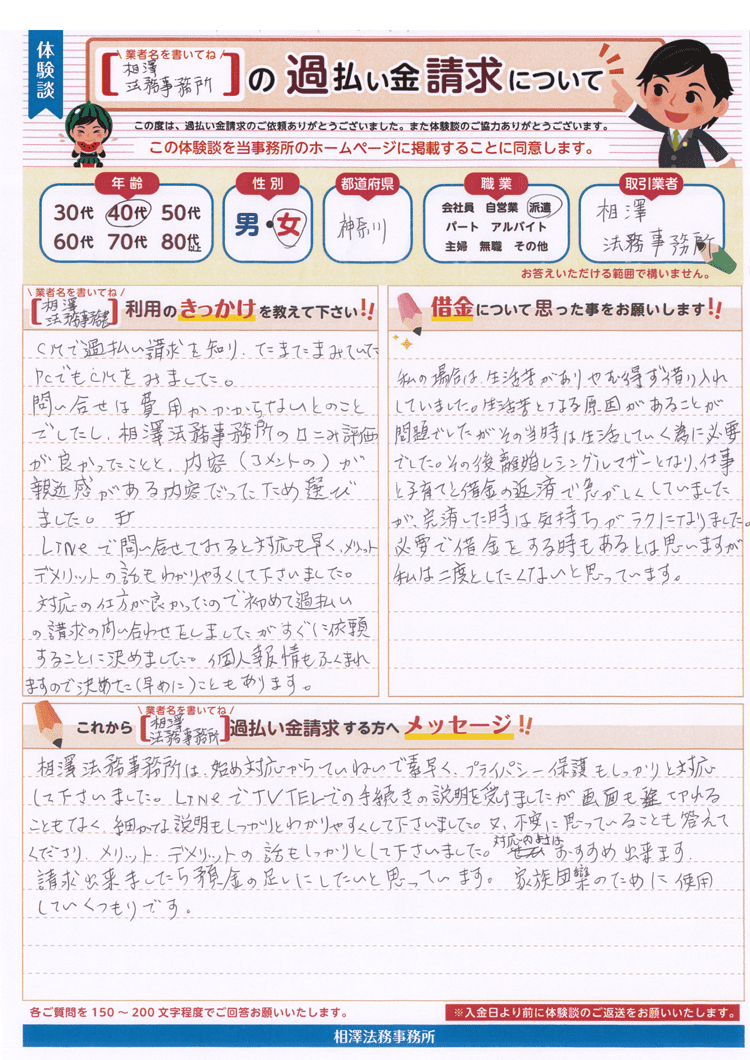 体験談
業者名を書いてね
[相澤法務事務所]の 過払い金請求について
この度は、過払い金請求のご依頼ありがとうございました。また体験談のご協力ありがとうございます。
この体験談を当事務所のホームページに掲載することに同意します。
年齢
30代 40代 50代
60代 70代 80代以上
性別
男・女
都道府県
神奈川
職業
会社員 自営業 派遣
パート アルバイト
主婦 無職 その他
取引業者
相澤
法務事務所
お答えいただける範囲で構いません。
業者名を書いてね
[相澤法務事務所]利用のきっかけを教えて下さい!!
CMで過払い請求を知り、たまたまみていた
PCでもCMをみました。
問い合せは費用がかからないとのこと
でしたし、相澤法務事務所の口コミ評価
が良かったことと、内容(コメントの)が
親近感がある内容だったため選び
ました。
LINEで問い合せておると対応も早く、メリット
デメリットの話もわかりやすくして下さいました。
対応の仕方が良かったので初めて過払い
の請求の問い合わせをしましたがすぐに依頼
することに決めました。個人報情もふくまれ
ますので決めた(早めに)こともあります。
借金について思った事をお願いします!!
私の場合は、生活苦がありやむ得ず借り入れ
していました。生活苦となる原因があることが
問題でしたがその当時は生活していく為に必要
でした。その後離婚しシングルマザーとなり、仕事
と子育てと借金の返済で急がしくしていました
が、完済した時は気持ちがラクになりました。
必要で借金をする時もあるとは思いますが
私は二度としたくないと思っています。
業者名を書いてね
これから[相澤法務事務所]過払い金請求する方へメッセージ!!
相澤法務事務所は、始め対応からていねいで素早く、プライバシー保護もしっかりと対応
して下さいました。LINEでTVTELでの手続きの説明を受けましたが画面も切れる
こともなく、細かな説明もしっかりとわかりやすくして下さいました。又、不安に思っていることも答えて
くださり、メリット、デメリットの話もしっかりとして下さいました。対応内容はおすすめ出来ます。
請求出来ましたら預金の足しにしたいと思っています。家族団欒のために使用
していくつもりです。
各ご質問を150～200文字程度でご回答お願いいたします。
※入金日より前に体験談のご返送をお願いいたします。
相澤法務事務所